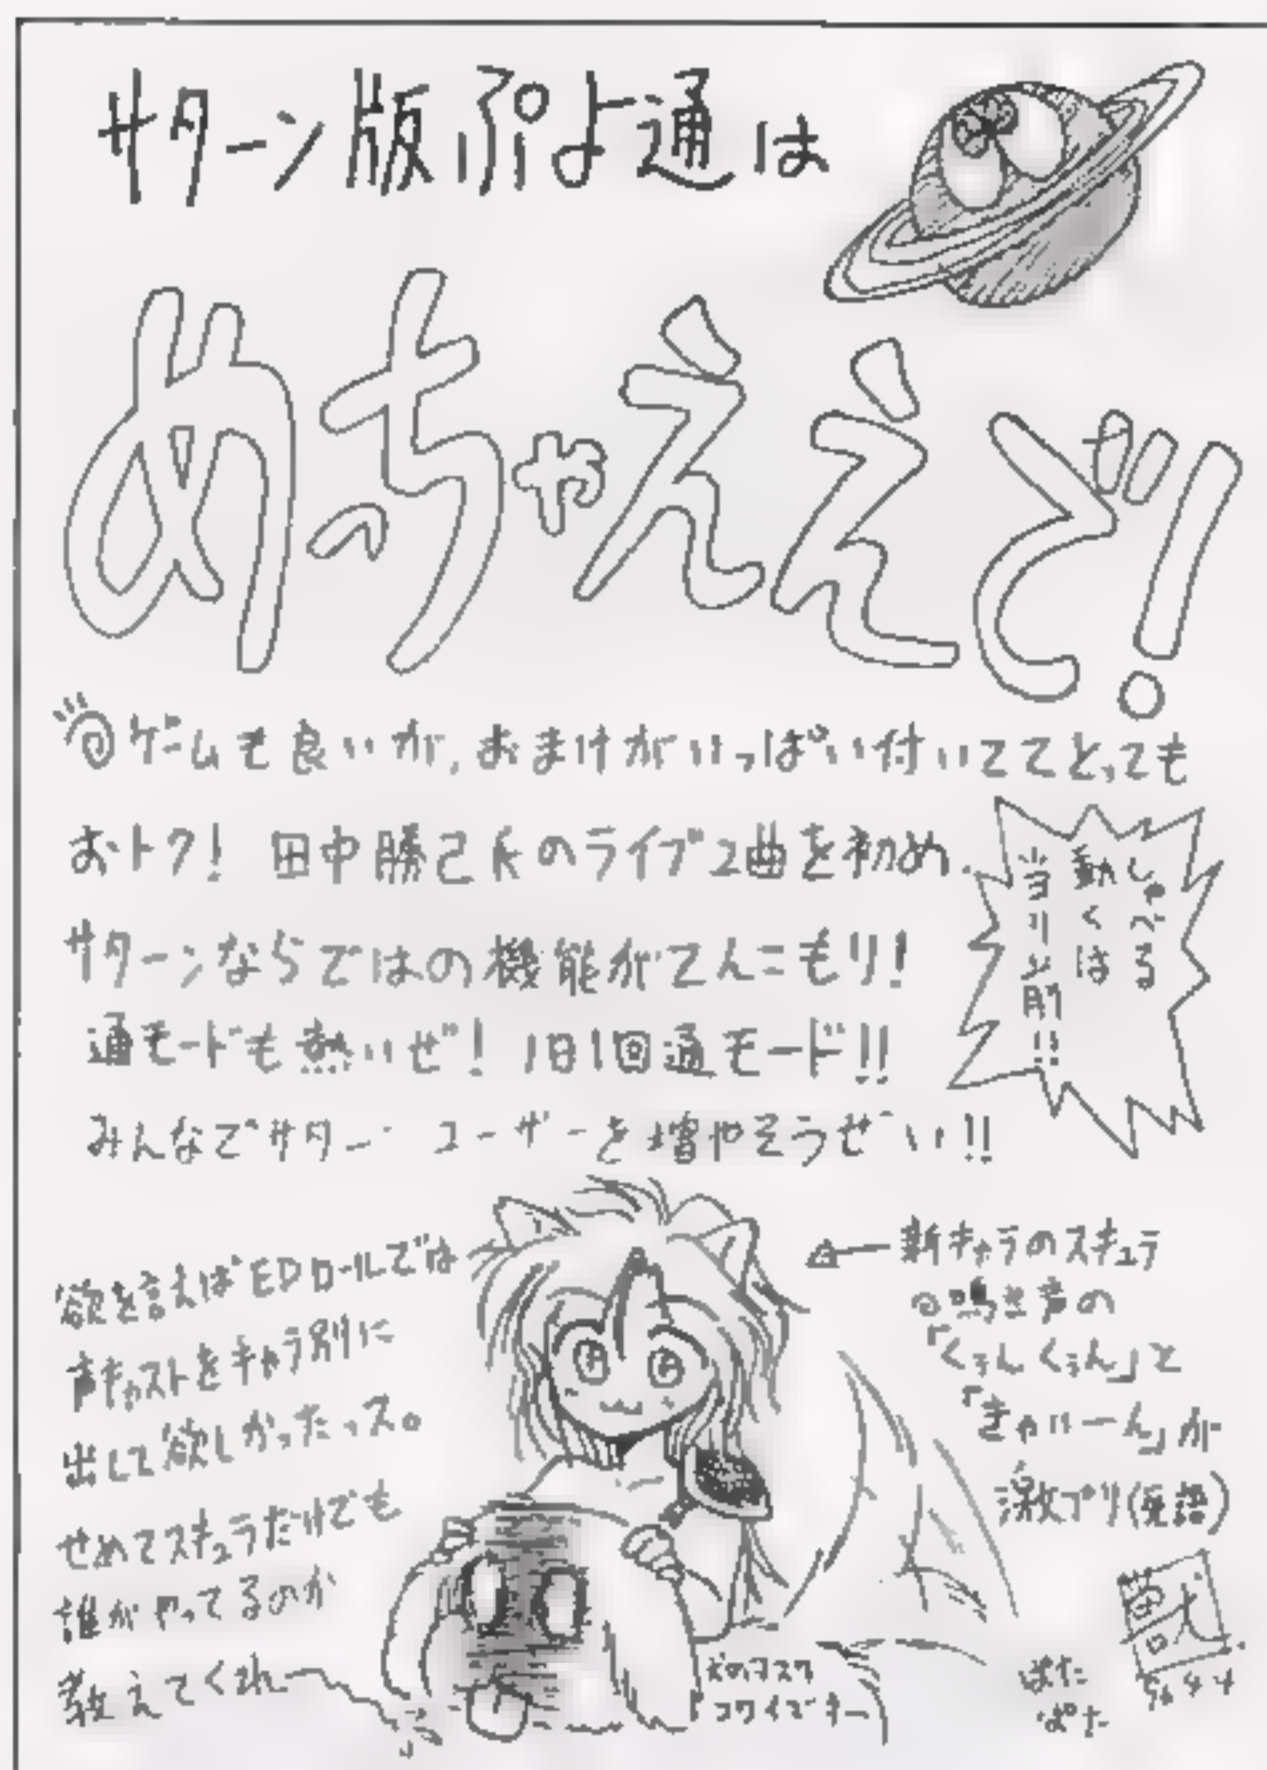 サターン版ぷよ通は
めっちゃええで!
ゲームも良いが、おまけがいっぱい付いててとっても
おトク! 田中勝己氏のライブ2曲を初め、
サターンならではの機能がてんこもり!
通モードも熱いぜ! 1日1回通モード!!
みんなでサターンユーザーを増やそうぜい!!
しゃべる
動くは
当り前!!
欲を言えばEDロールでは
声キャストをキャラ別に
出して欲しかったっス。
せめてスキュラだけでも
誰がやってるのか
教えてくれー
新キャラのスキュラ
の鳴き声の
「くぅんくぅん」と
「きゃいーん」が
激プリ(死語)
犬のマスク
コワイズキー
ぱた
ぱた
獣
'96 9 4